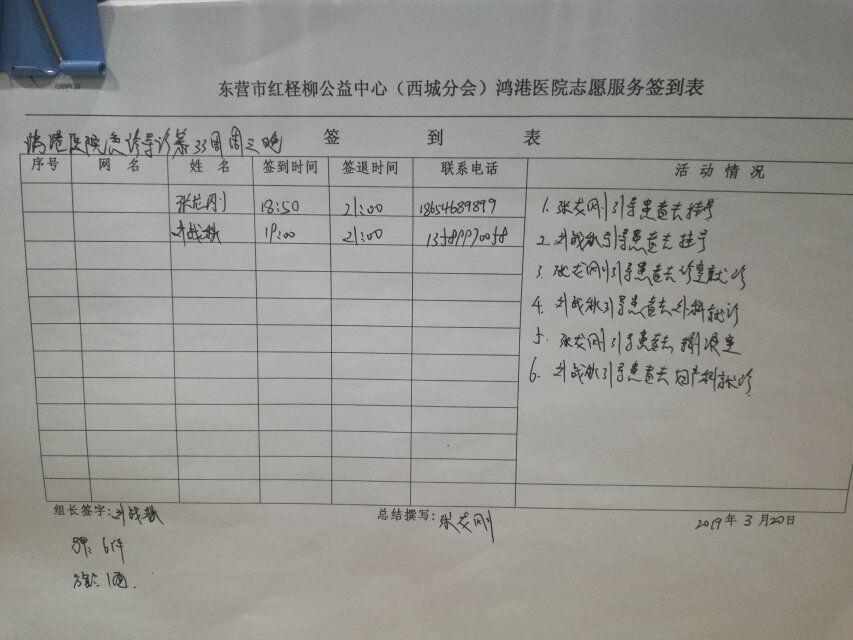 东营市红柽柳公益中心（西城分会）鸿港医院志愿服务签到表
签 到 表
鸿港医院急诊导诊第33周周三晚
序号 网 名 姓 名 签到时间 签退时间 联系电话 活 动 情 况
张龙刚 18:50 21:00 18654689899
刘战秋 19:00 21:00
1. 张龙刚引导患者去挂号
2. 刘战秋引导患者去挂号
3. 张龙刚引导患者去诊室就诊
4. 刘战秋引导患者去外科就诊
5. 张龙刚引导患者去输液室
6. 刘战秋引导患者去妇产科就诊
组长签字：刘战秋 总结撰写：张龙刚 2019年 3月20日
6件
1酒